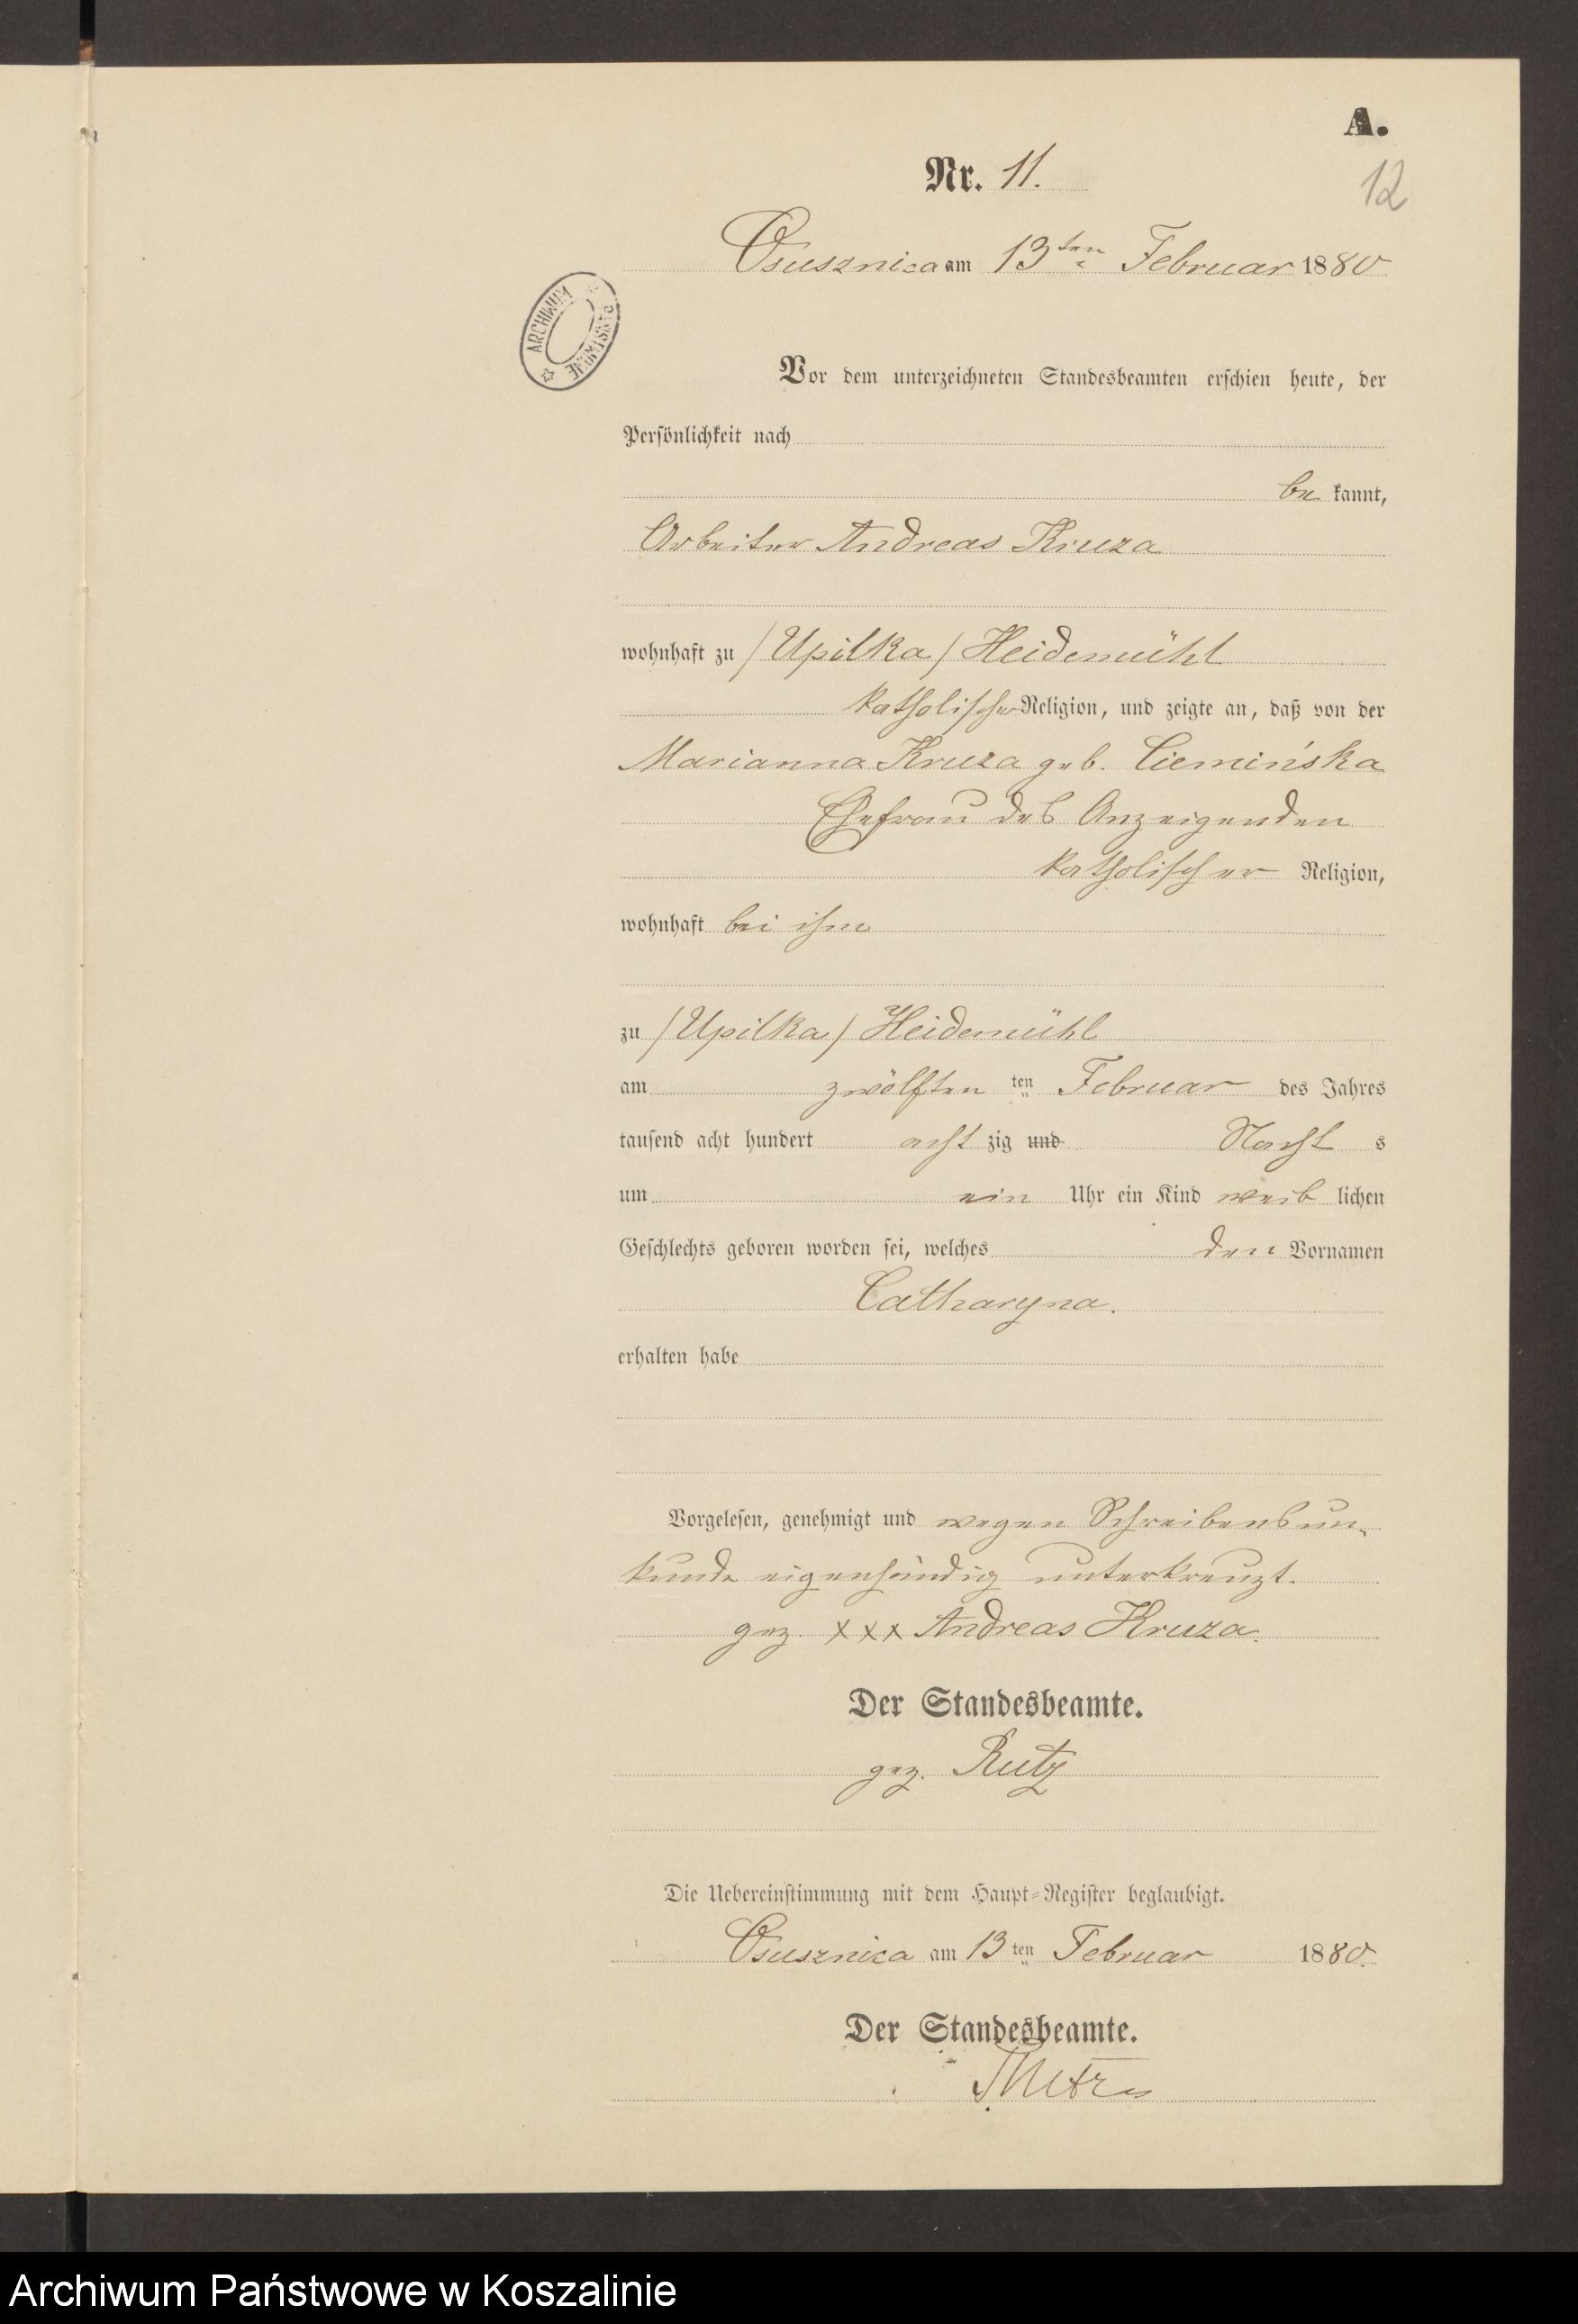 A.
Nr. 11.
12
Osusznica am 13ten Februar 1880
ARCHIWUM PAŃSTWOWE
Vor dem unterzeichneten Standesbeamten erschien heute, der
Persönlichkeit nach
be kannt,
Arbeiter Andreas Kruza
wohnhaft zu /Upilka/ Heidemühl
katholischer Religion, und zeigte an, daß von der
Marianna Kruza geb. Ciemińska
Ehefrau des Anzeigenden
katholischer Religion,
wohnhaft bei ihm
zu /Upilka/ Heidemühl
am zwölften ten Februar des Jahres
tausend acht hundert acht zig und Nacht s
um ein Uhr ein Kind weib lichen
Geschlechts geboren worden sei, welches den Vornamen
Catharyna.
erhalten habe
Vorgelesen, genehmigt und wegen Schreibensun-
kunde eigenhändig unterkreuzt.
gez. xxx Andreas Kruza.
Der Standesbeamte.
gez. Rutz
Die Uebereinstimmung mit dem Haupt-Register beglaubigt.
Osusznica am 13 ten Februar 1880.
Der Standesbeamte.
Archiwum Państwowe w Koszalinie